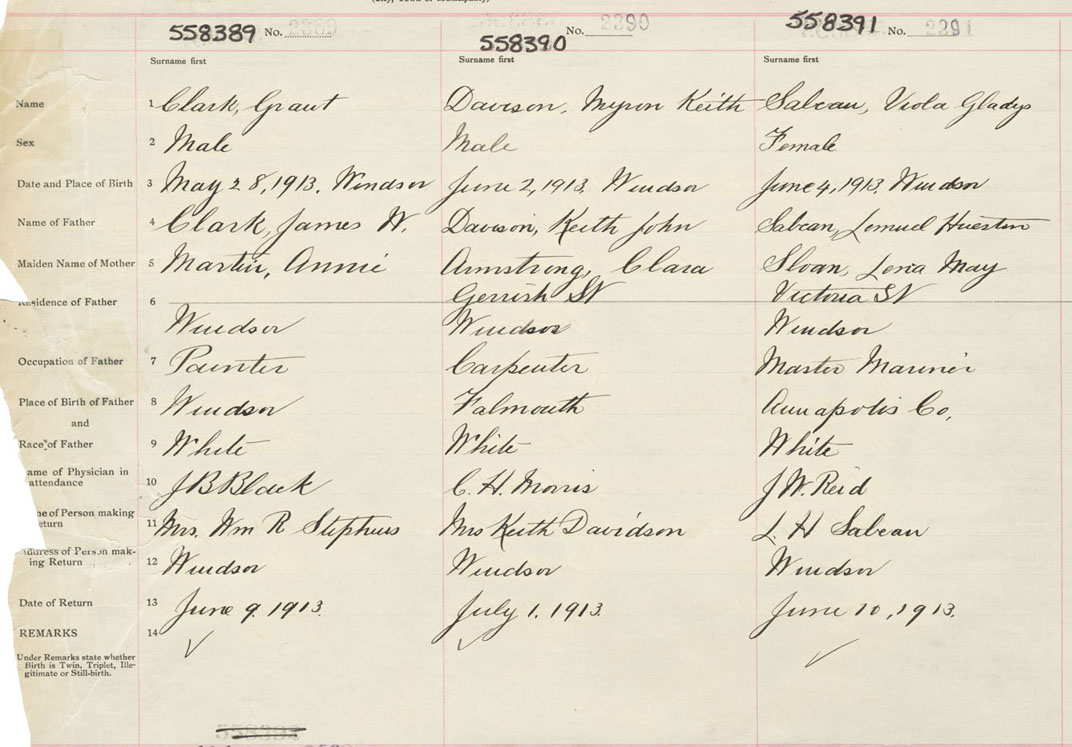 (City, Town or Municipality)
558389 No. 2389
558390 No. 2390
558391 No. 2391
Surname first Surname first Surname first
Name 1 Clark, Grant Davison, Myron Keith Sabean, Viola Gladys
Sex 2 Male Male Female
Date and Place of Birth 3 May 28, 1913. Windsor June 2, 1913. Windsor June 4, 1913. Windsor
Name of Father 4 Clark, James W. Davison, Keith John Sabean, Lemuel Hueston
Maiden Name of Mother 5 Martin, Annie Armstrong, Clara Sloan, Lena May
Gerrish St Victoria St
Residence of Father 6
Windsor Windsor Windsor
Occupation of Father 7 Painter Carpenter Master Mariner
Place of Birth of Father 8 Windsor Falmouth Annapolis Co.
and
Race of Father 9 White White White
ame of Physician in
attendance 10 J B Black C. H. Morris J W. Reid
me of Person making
eturn 11 Mrs. Wm R Stephens Mrs Keith Davidson L H Sabean
ddress of Person mak-
ing Return 12 Windsor Windsor Windsor
Date of Return 13 June 9. 1913. July 1. 1913. June 10, 1913.
REMARKS 14
Under Remarks state whether
Birth is Twin, Triplet, Ille-
gitimate or Still-birth.